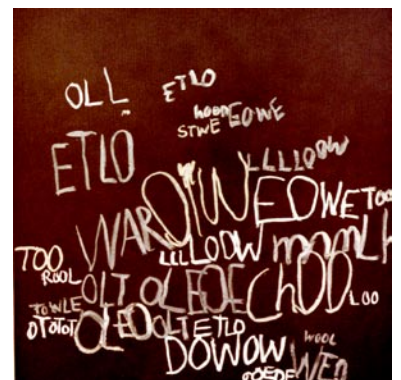 OLL ETLO
HOOD
STWE EOWE
ETLO
LLLLOOW
WAROTW EOWETOO
TOO LLLLOOW mmmLh
ROOL
OLT OLEOE ChOO LOO
TOWLE
OTOTOT OLEO OLTETLO
DOWOW WOOL
OOEDE WEO